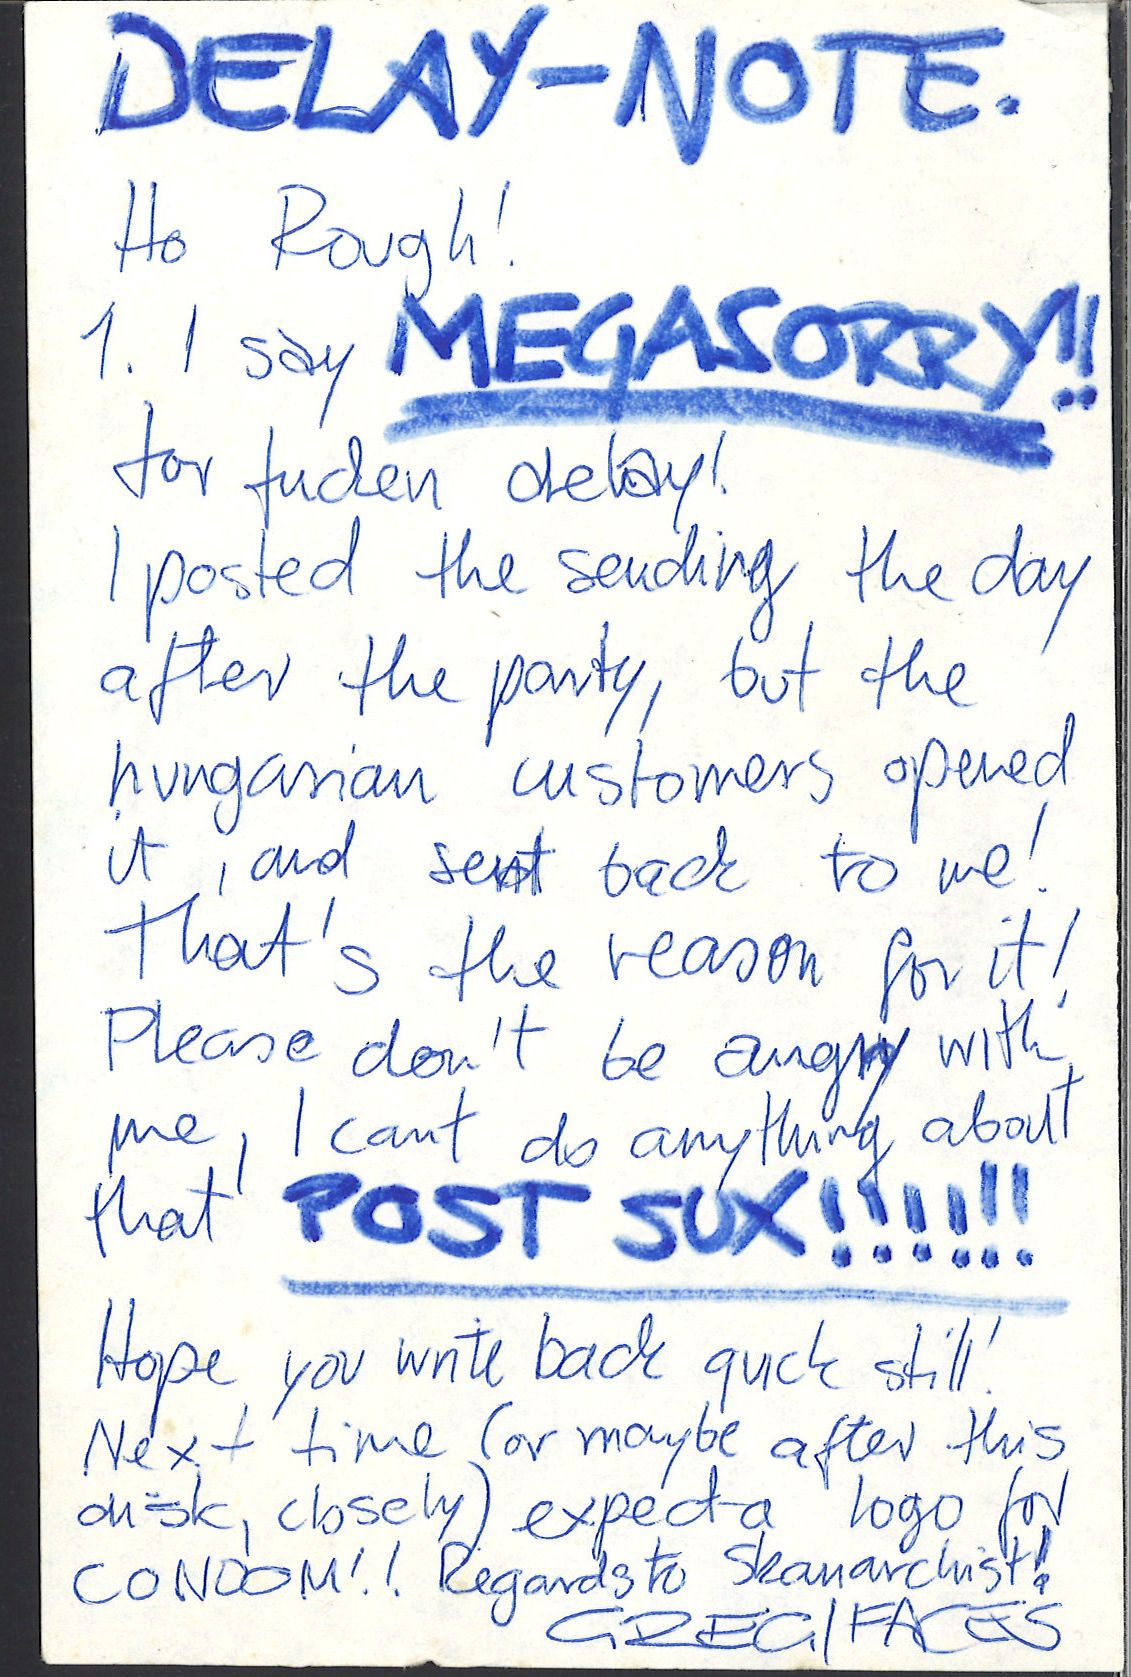 DELAY-NOTE.
Ho Rough!
1. I say MEGASORRY!!
for fucken delay!
I posted the sending the day
after the party, but the
hungarian customers opened
it, and sent back to me!
That's the reason for it!
Please don't be angry with
me, I cant do anything about
that POST SUX!!!!!!
Hope you write back quick still!
Next time (or maybe after this
disk, closely) expect a logo for
CONDOM!! Regards to Skanarchist!
GREG/FACES